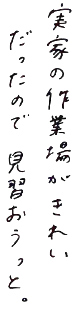 実家の作業場がきれい
だったので 見習おうっと。